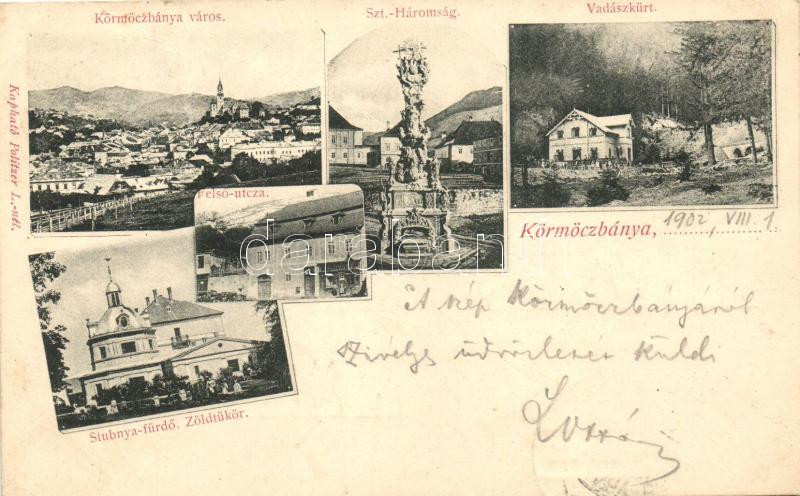 Körmöczbánya város.
Szt.-Háromság.
Vadászkürt.
Kapható Politzer L.-nél.
Felső-utcza.
darabanth
Körmöczbánya, 1902, VIII. 1
A szép Körmöczbányáról
Szivélyes üdvözletét küldi
Stubnya-fürdő. Zöldtükör.